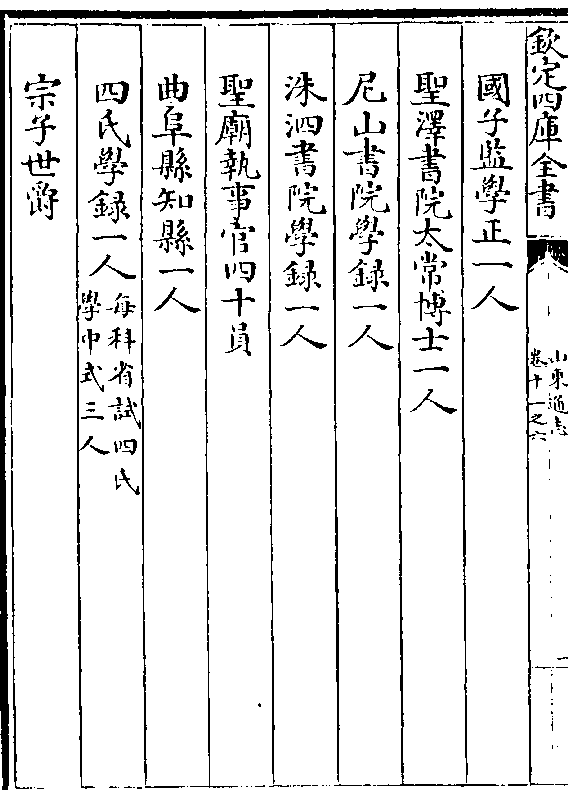 欽定四庫全書
山東通志
卷十一之六
國子監學正一人
聖澤書院太常博士一人
尼山書院學録一人
洙泗書院學録一人
聖廟執事官四十員
曲阜縣知縣一人
四氏學録一人每科省試四氏
學中式三人
宗子世爵